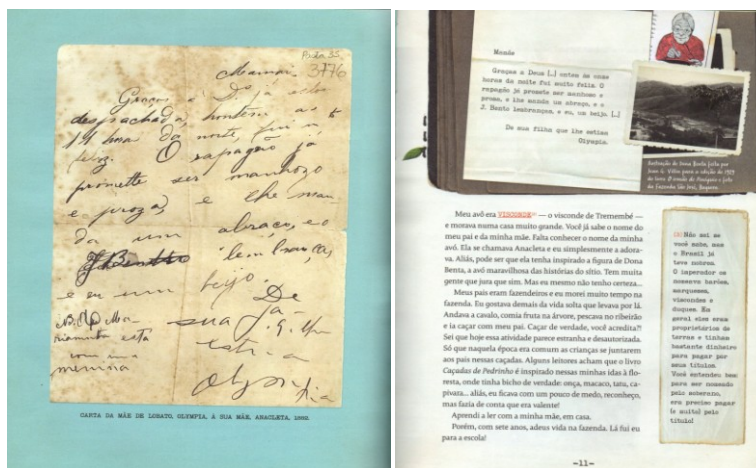 Pasta 35
3776
Mamãi
Graças a D.s já estou
despachada, hontem as
11 hora da noite, fui m.to
feliz. O rapagão já
promette ser manhozo
e proza, e lhe man
da um abraço, e o
J. Bento lembranças,
e eu um beijo.
De
sua f.a q. lhe
estima
Olympia
N.B. A Ma
rianinha está
com uma
menina
CARTA DA MÃE DE LOBATO, OLYMPIA, À SUA MÃE, ANACLETA, 1882.
Mamãe
Graças a Deus [...] ontem às onze
horas da noite fui muito feliz. O
rapagão já promete ser manhoso e
prosa, e lhe manda um abraço, e o
J. Bento lembranças, e eu, um beijo. [...]
De sua filha que lhe estima
Olympia.
Ilustração de Dona Benta feita por
Jean G. Villin para a edição de 1929
da fazenda São José, Buquira.
Meu avô era VISCONDE — o visconde de Tremembé —
e morava numa casa muito grande. Você já sabe o nome do
meu pai e da minha mãe. Falta conhecer o nome da minha
avó. Ela se chamava Anacleta e eu simplesmente a adora-
va. Aliás, pode ser que ela tenha inspirado a figura de Dona
Benta, a avó maravilhosa das histórias do sítio. Tem muita
gente que jura que sim. Mas eu mesmo não tenho certeza...
Meus pais eram fazendeiros e eu morei muito tempo na
fazenda. Eu gostava demais da vida solta que levava por lá.
Andava a cavalo, comia fruta na árvore, pescava no ribeirão
e ia caçar com meu pai. Caçar de verdade, você acredita?!
Sei que hoje essa atividade parece estranha e desautorizada.
Só que naquela época era comum as crianças se juntarem
aos pais nessas caçadas. Alguns leitores acham que o livro
Caçadas de Pedrinho é inspirado nessas minhas idas à flo-
resta, onde tinha bicho de verdade: onça, macaco, tatu, ca-
pivara... aliás, eu ficava com um pouco de medo, reconheço,
mas fazia de conta que era valente!
Aprendi a ler com a minha mãe, em casa.
Porém, com sete anos, adeus vida na fazenda. Lá fui eu
para a escola!
Não sei se
você sabe, mas
o Brasil já
teve nobres.
O imperador os
nomeava barões,
marqueses,
viscondes e
duques. Em
geral eles eram
proprietários de
terras e tinham
bastante dinheiro
para pagar por
seus títulos.
Você entendeu bem:
para ser nomeado
pelo soberano,
era preciso pagar
(e muito) pelo
título!
—11—